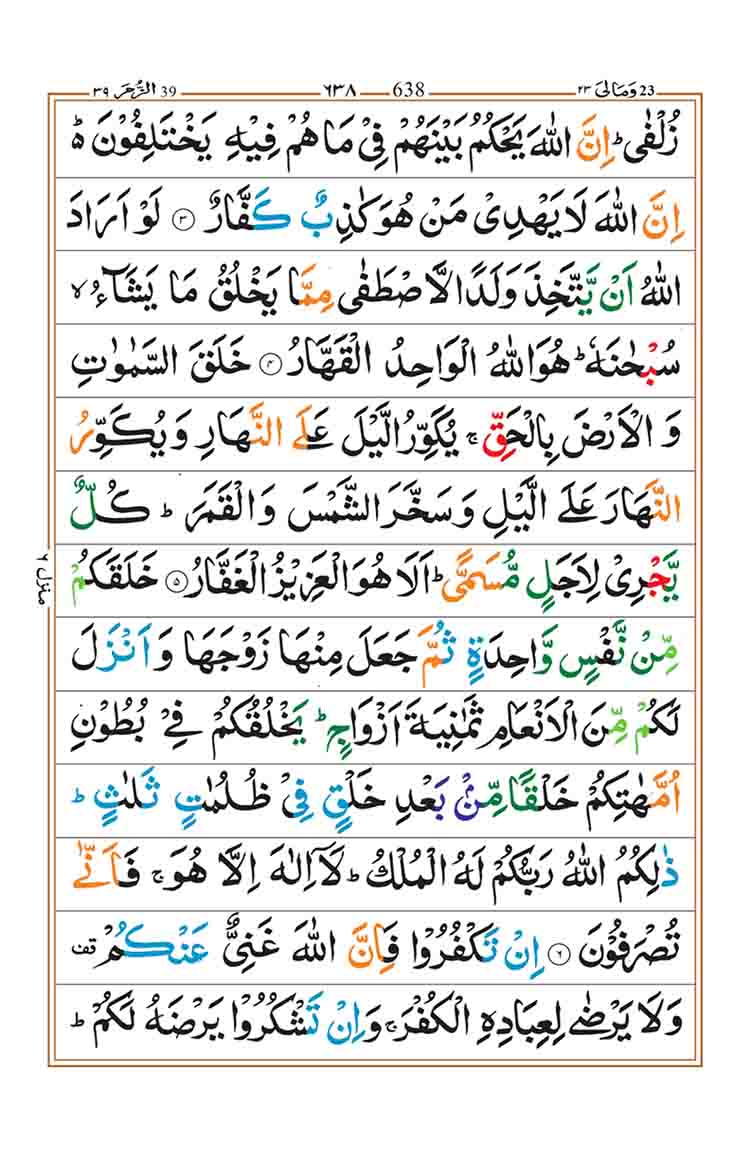 ٣٩ الزُّمَر 39 ٦٣٨ 638 ٢٣ وَمَالِیَ 23
زُلْفٰیؕ اِنَّ اللّٰهَ یَحْكُمُ بَیْنَهُمْ فِیْ مَا هُمْ فِیْهِ یَخْتَلِفُوْنَ ؕ۬
اِنَّ اللّٰهَ لَا یَهْدِیْ مَنْ هُوَ كٰذِبٌ كَفَّارٌ ۝۳ لَوْ اَرَادَ
اللّٰهُ اَنْ یَّتَّخِذَ وَلَدًا لَّاصْطَفٰی مِمَّا یَخْلُقُ مَا یَشَآءُ ۙ
سُبْحٰنَهٗؕ هُوَ اللّٰهُ الْوَاحِدُ الْقَهَّارُ ۝۴ خَلَقَ السَّمٰوٰتِ
وَ الْاَرْضَ بِالْحَقِّ ۚ یُكَوِّرُ الَّیْلَ عَلَی النَّهَارِ وَ یُكَوِّرُ
النَّهَارَ عَلَی الَّیْلِ وَ سَخَّرَ الشَّمْسَ وَ الْقَمَرَ ؕ كُلٌّ
یَّجْرِیْ لِاَجَلٍ مُّسَمًّیؕ اَلَا هُوَ الْعَزِیْزُ الْغَفَّارُ ۝۵ خَلَقَكُمْ
مِّنْ نَّفْسٍ وَّاحِدَةٍ ثُمَّ جَعَلَ مِنْهَا زَوْجَهَا وَ اَنْزَلَ
لَكُمْ مِّنَ الْاَنْعَامِ ثَمٰنِیَةَ اَزْوَاجٍؕ یَخْلُقُكُمْ فِیْ بُطُوْنِ
اُمَّهٰتِكُمْ خَلْقًا مِّنْۢ بَعْدِ خَلْقٍ فِیْ ظُلُمٰتٍ ثَلٰثٍ ؕ
ذٰلِكُمُ اللّٰهُ رَبُّكُمْ لَهُ الْمُلْكُؕ لَاۤ اِلٰهَ اِلَّا هُوَ ۚ فَاَنّٰی
تُصْرَفُوْنَ ۝۶ اِنْ تَكْفُرُوْا فَاِنَّ اللّٰهَ غَنِیٌّ عَنْكُمْ قف
وَ لَا یَرْضٰی لِعِبَادِهِ الْكُفْرَ ۚ وَ اِنْ تَشْكُرُوْا یَرْضَهُ لَكُمْ ؕ
منزل ٦